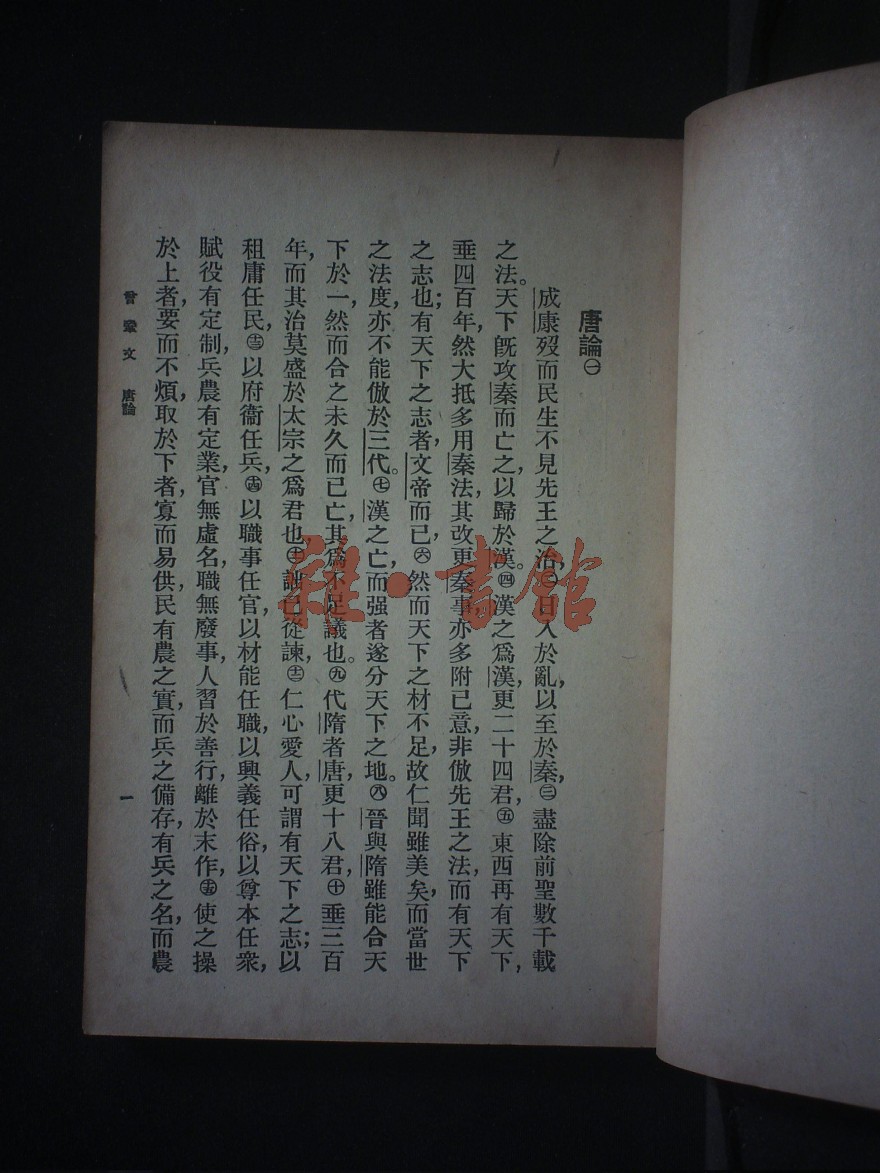 唐論㊀
成康歿而民生不見先王之治，㊁日入於亂，以至於秦，㊂盡除前聖數千載
之法。天下旣攻秦而亡之，以歸於漢。㊃漢之爲漢，更二十四君，㊄東西再有天下，
垂四百年，然大抵多用秦法，其改更秦事，亦多附己意，非倣先王之法，而有天下
之志也；有天下之志者，文帝而已，㊅然而天下之材不足，故仁聞雖美矣，而當世
之法度，亦不能倣於三代。㊆漢之亡，而强者遂分天下之地。㊇晉與隋雖能合天
下於一，然而合之未久而已亡，其爲不足議也。㊈代隋者唐，更十八君，㊉垂三百
年，而其治莫盛於太宗之爲君也，㊉㊀詘己從諫，㊉㊁仁心愛人，可謂有天下之志；以
租庸任民，㊉㊂以府衞任兵，㊉㊃以職事任官，以材能任職，以興義任俗，以尊本任衆，
賦役有定制，兵農有定業，官無虛名，職無廢事，人習於善行，離於末作，㊉㊄使之操
於上者，要而不煩，取於下者，寡而易供，民有農之實，而兵之備存，有兵之名，而農
曾鞏文 唐論
一
雜·書館